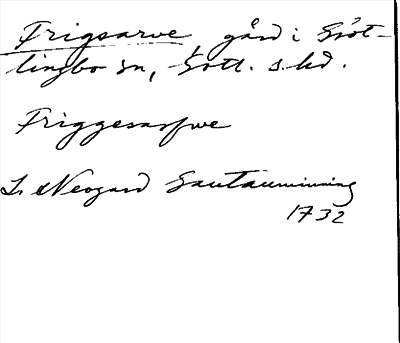 Frigsarve gård i Gröt-
lingbo sn, Gotl. s. hd.
Friggesarfwe
L. Neogard Gautauminning
1732